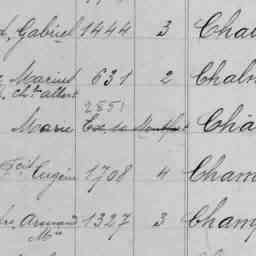 Gabriel 1444 3 Cha
Marius 631 2 Chaln
Ch. Albert
2851
Marie Cha
Eugène 1708 4 Cham
Armand 1327 3 Champ